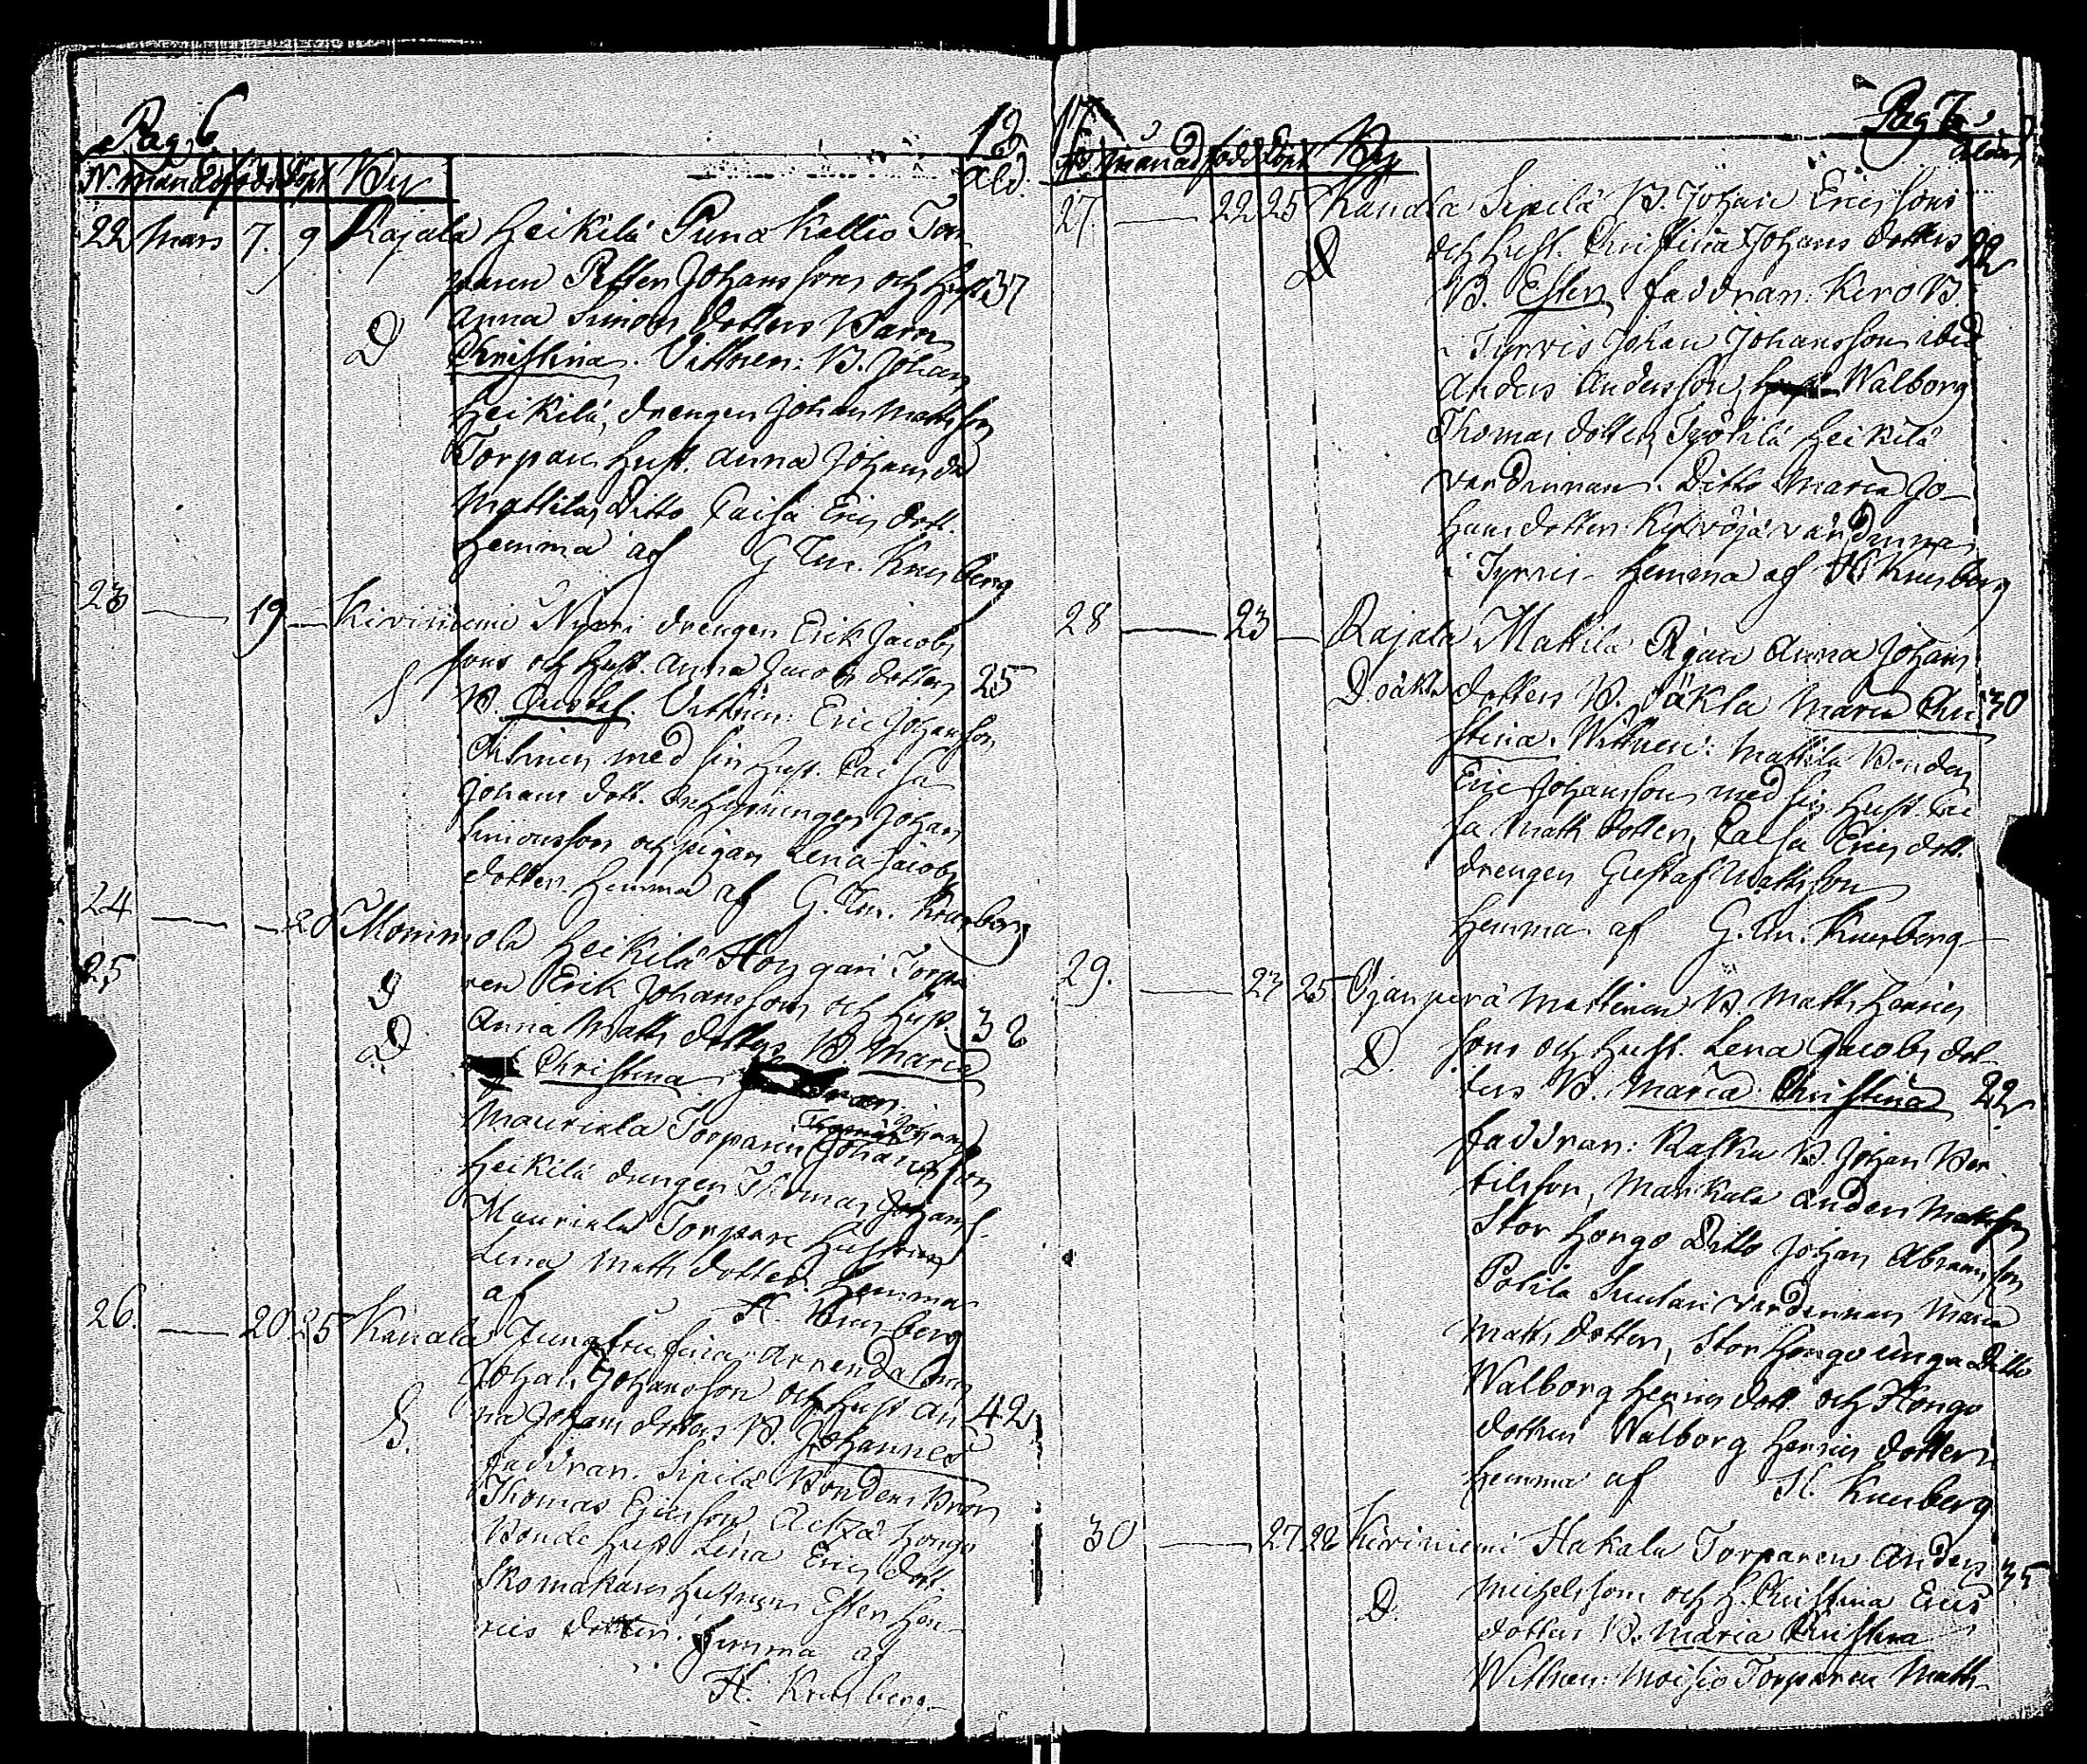 Pag 6
N. Månad född döpt By Åld.
22 Mars 7. 9 Rajala Heikilä Puna Kallio Tor
paren Petter Johanssons och Hust 37
D Anna Simons dotters Barn
Christina. Vittnen: B. Johan
Heikilä, drengen Johan Mattsson
Torpare Hust. Anna Johans do
Mattila, Ditto Caisa Erics dott.
Hemma af G. Em. Kreuberg
23 — 19 — Kiviniemi Nyrri drengen Erik Jacobs
sons och Hust. Anna Jacobs dotters 25
S B. Gustaf. Vittnen: Eric Johansson
med sin Hust. Caisa
Johans dott. Johan
Simonsson och pigan Lena Jacobs
dotter. Hemma af G. Em. Kreuberg
24 — — 20 Mommola Heikilä Hongari Torpa
25
D ren Erik Johanssons och Hust. 38
D Anna Matts dotters B. Maria
Christina
Mauriala Torparen Johansson
Heikilä drengen Thomas Johans
Mauriala Torpare Hustrun
Lena Matts dotter. Hemma
af H. Kreuberg
26. — 20 25 Kanala Jungfru
Johan Johansson och Hust. An 42
S. na Johans dotters B. Johannes
faddran. Sipilä Bondens Bror
Thomas Ericsson Hongo
Bonde Hust. Lena Erics dott.
Skomakares Hustrun Ester Hen
rics dotter. Hemma af
H. Kreuberg
Pag 7
N. månad född döpt By Ålder
27. — 22 25 Kanala Sipilä B. Johan Erics sons
D och Hust. Christina Johans dotters 22
B. Ester faddran: Kero B.
i Tyrvis Johan Johansson ibid
Anders Andersson, Walborg
Thomas dotter, Heikilä
värdinnan. Ditto Maria Jo-
hans dotter värdinna
i Tyrvis - Hemma af H Kreuberg
28 — 23 — Rajala Mattila Pigan Anna Johans
D. oäkta dotters B. oäkta Maria Chri 30
stina. Wittnen: Mattila Bonden
Eric Johansson med sin Hust. Cai
sa Matts dotter, Caisa Erics dott.
drengen Gustaf Mattsson
Hemma af G. Em. Kreuberg
29. — 23 25. Ojanperä Mattinen B. Matts Henrics
D. sons och Hust. Lena Jacobs dot-
ters B. Maria Christina 22
faddran: Raska B. Johan Ber
tilsson, Markala Anders Mattsson
Stor Hongo Ditto Johan Abramsson
Pohila Suutari värdinnan Maria
Matts dotter, Stor Hongo unga Ditto
Walborg Henrics dott. och Hongo
dotter Walborg Henrics dotter
Hemma af H. Kreuberg
30 — 27 28 Kiviniemi Hakala Torparen Anders 35
D. Michelssons och H. Christina Erics
dotters B. Maria Christina
Wittnen: Moisio Torparen Matts